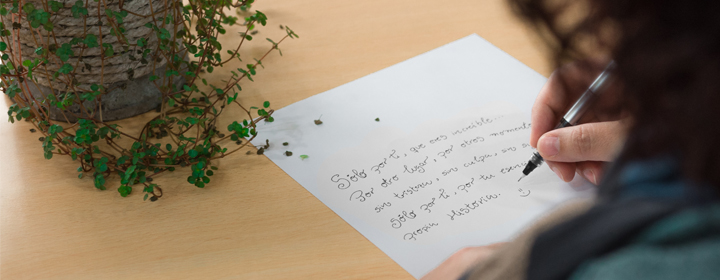 Sólo por ti, que eres increíble...
Por otro lugar, por otros momento
sin tristeza, sin culpa, sin
Sólo por ti, por tu
propia Historia. :)